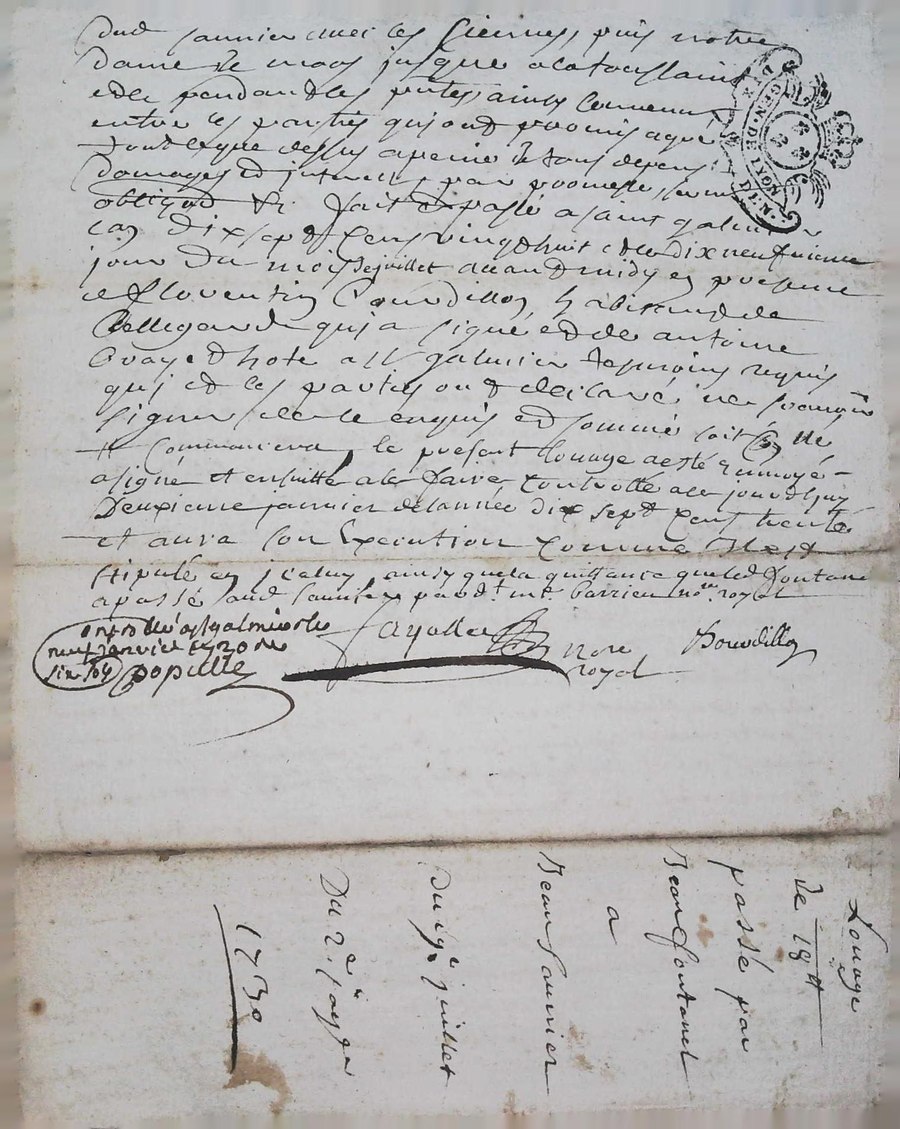 dud saunier avec les siennes, puis notre
dame de mars jusque a la toussaint
et de pendant les ainsy convenu
entre les parties qui ont promis agréer
tout ce que dessus a peine de tous depens
domages et interets par promesse
obligaõn &c. fait et passé a saint galmier
l'an dix sept cens vingt huit et le dix neufvieme
jour du mois de juillet avant midy en presence
de florentin Bourdillon, habitant de
Bellegarde qui a signé et de antoine
hote a St galmier temoins requis
qui et les parties ont declaré ne sçavoir
signer de ce enquis et sommé soit con^lle
commancera le present louage a esté
a signé et ensuitte a le faire controllé a ce jourd'huy
deuxieme janvier de l'année dix sept cens trente
et aura son Execution comme Il est
stipulé en iceluy ainsy que la quittance que led fontanel
a passé aud saunier pard^t m^e barrieu no^re royal
controllé a st galmier le
neuf janvier 1730 Re
six sols
populle
nore
royal
Bourdillon
GEN. DE LYON
Louage
de 18^tt
passé par
Jean fontanel
a
Jean saunier
Du 19^e juillet
Du 2^e
1730